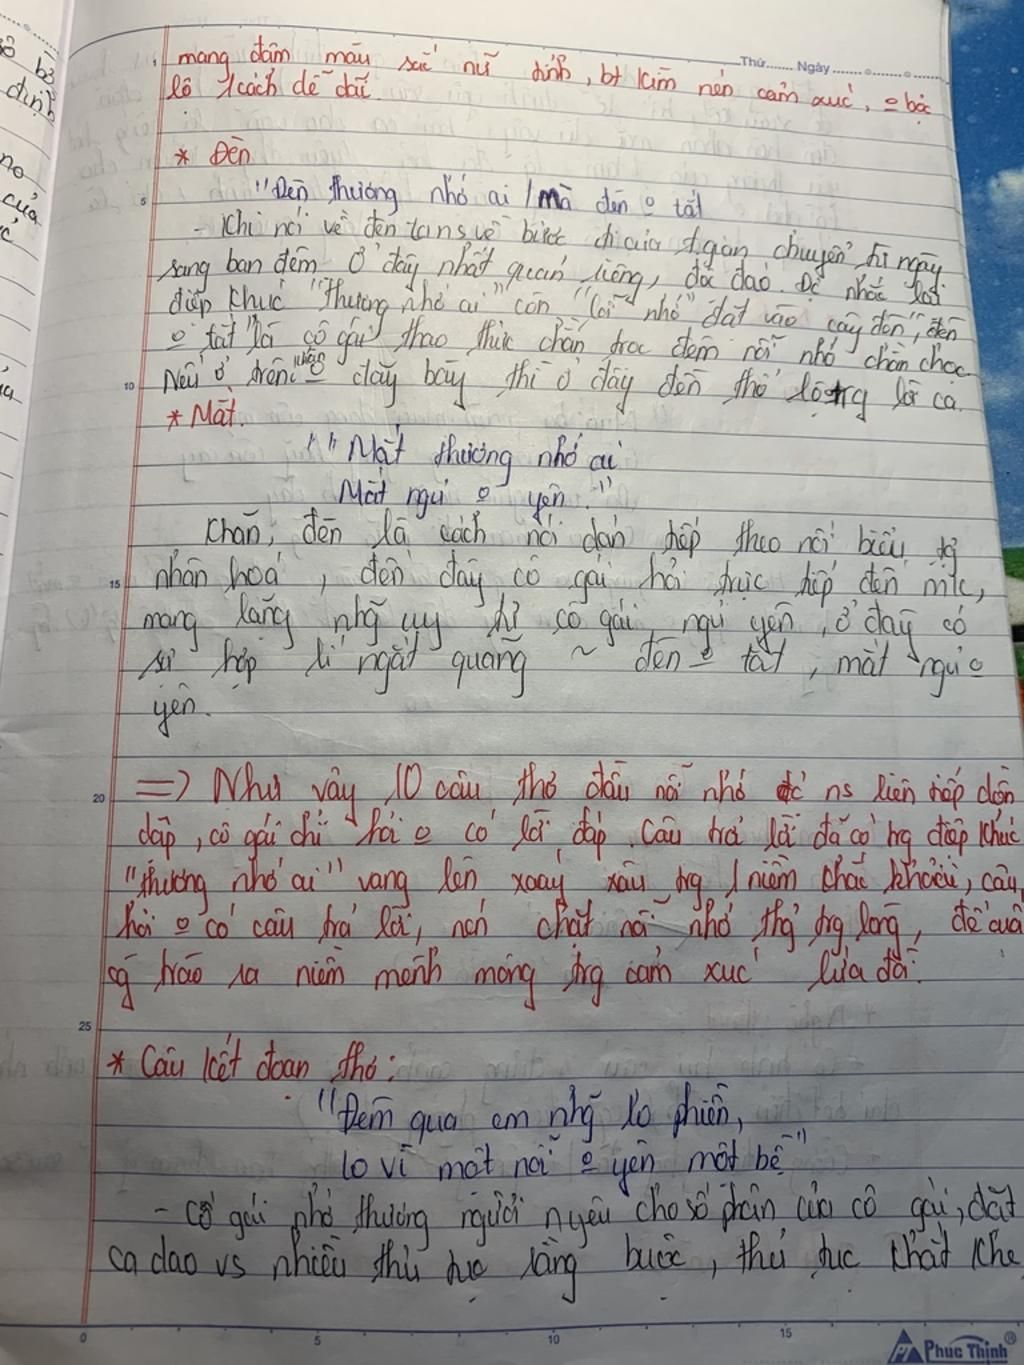 Thứ....... Ngày
mang đậm màu sắc nữ tính, bt kìm nén cảm xúc, o bộc
lộ 1 cách dễ dãi.
* Đèn
"Đèn thương nhớ ai / mà đèn o tắt
- Khi nói về đèn tức về bước đi của t.gian chuyển từ ngày
sang ban đêm ở đây nhất quán, độc đáo. Để nhắc lại
điệp khúc "thương nhớ ai" còn "lời nhớ" đặt vào cây đèn, "đèn
o tắt" là cô gái thao thức chằn trọc đêm nỗi nhớ chồn chọc
Nếu ở trên khăn o dãy bày thì ở đây đèn thổ lộ trg lời ca.
* Mắt.
"Mắt thương nhớ ai
Mắt ngủ o yên."
Khăn, đèn là cách nói dán tiếp theo nối biểu tg
nhân hoá, đến đây cô gái hỏi trực tiếp đến mk,
mang lặng nhg uy tư cô gái ngủ yên, ở đây có
sự hợp lí ngắt quãng ~ đèn o tắt, mắt ngủ o
yên.
=> Như vậy 10 câu thơ đầu nỗi nhớ đc ns liên tiếp dồn
dập, cô gái chỉ hỏi o có lời đáp. Câu trả lời đã có trg điệp khúc
"thương nhớ ai" vang lên xoáy xâu trg 1 niềm khắc khoải, câu
hỏi o có câu trả lời, nén chặt nỗi nhớ thg trg lòng, để cuối
cg trào ra niềm mênh mông trg cảm xúc lứa đôi.
* Câu kết đoạn thơ:
"Đêm qua em nhg lo phiền,
lo vì một nỗi o yên một bề"
- Cô gái nhớ thương người ny cho số phận của cô gái, đặt
ca dao vs nhiều thủ tục ràng buộc, thủ tục khắt khe
5
10
15
20
25
0
5
10
15
Phuc Thinh®